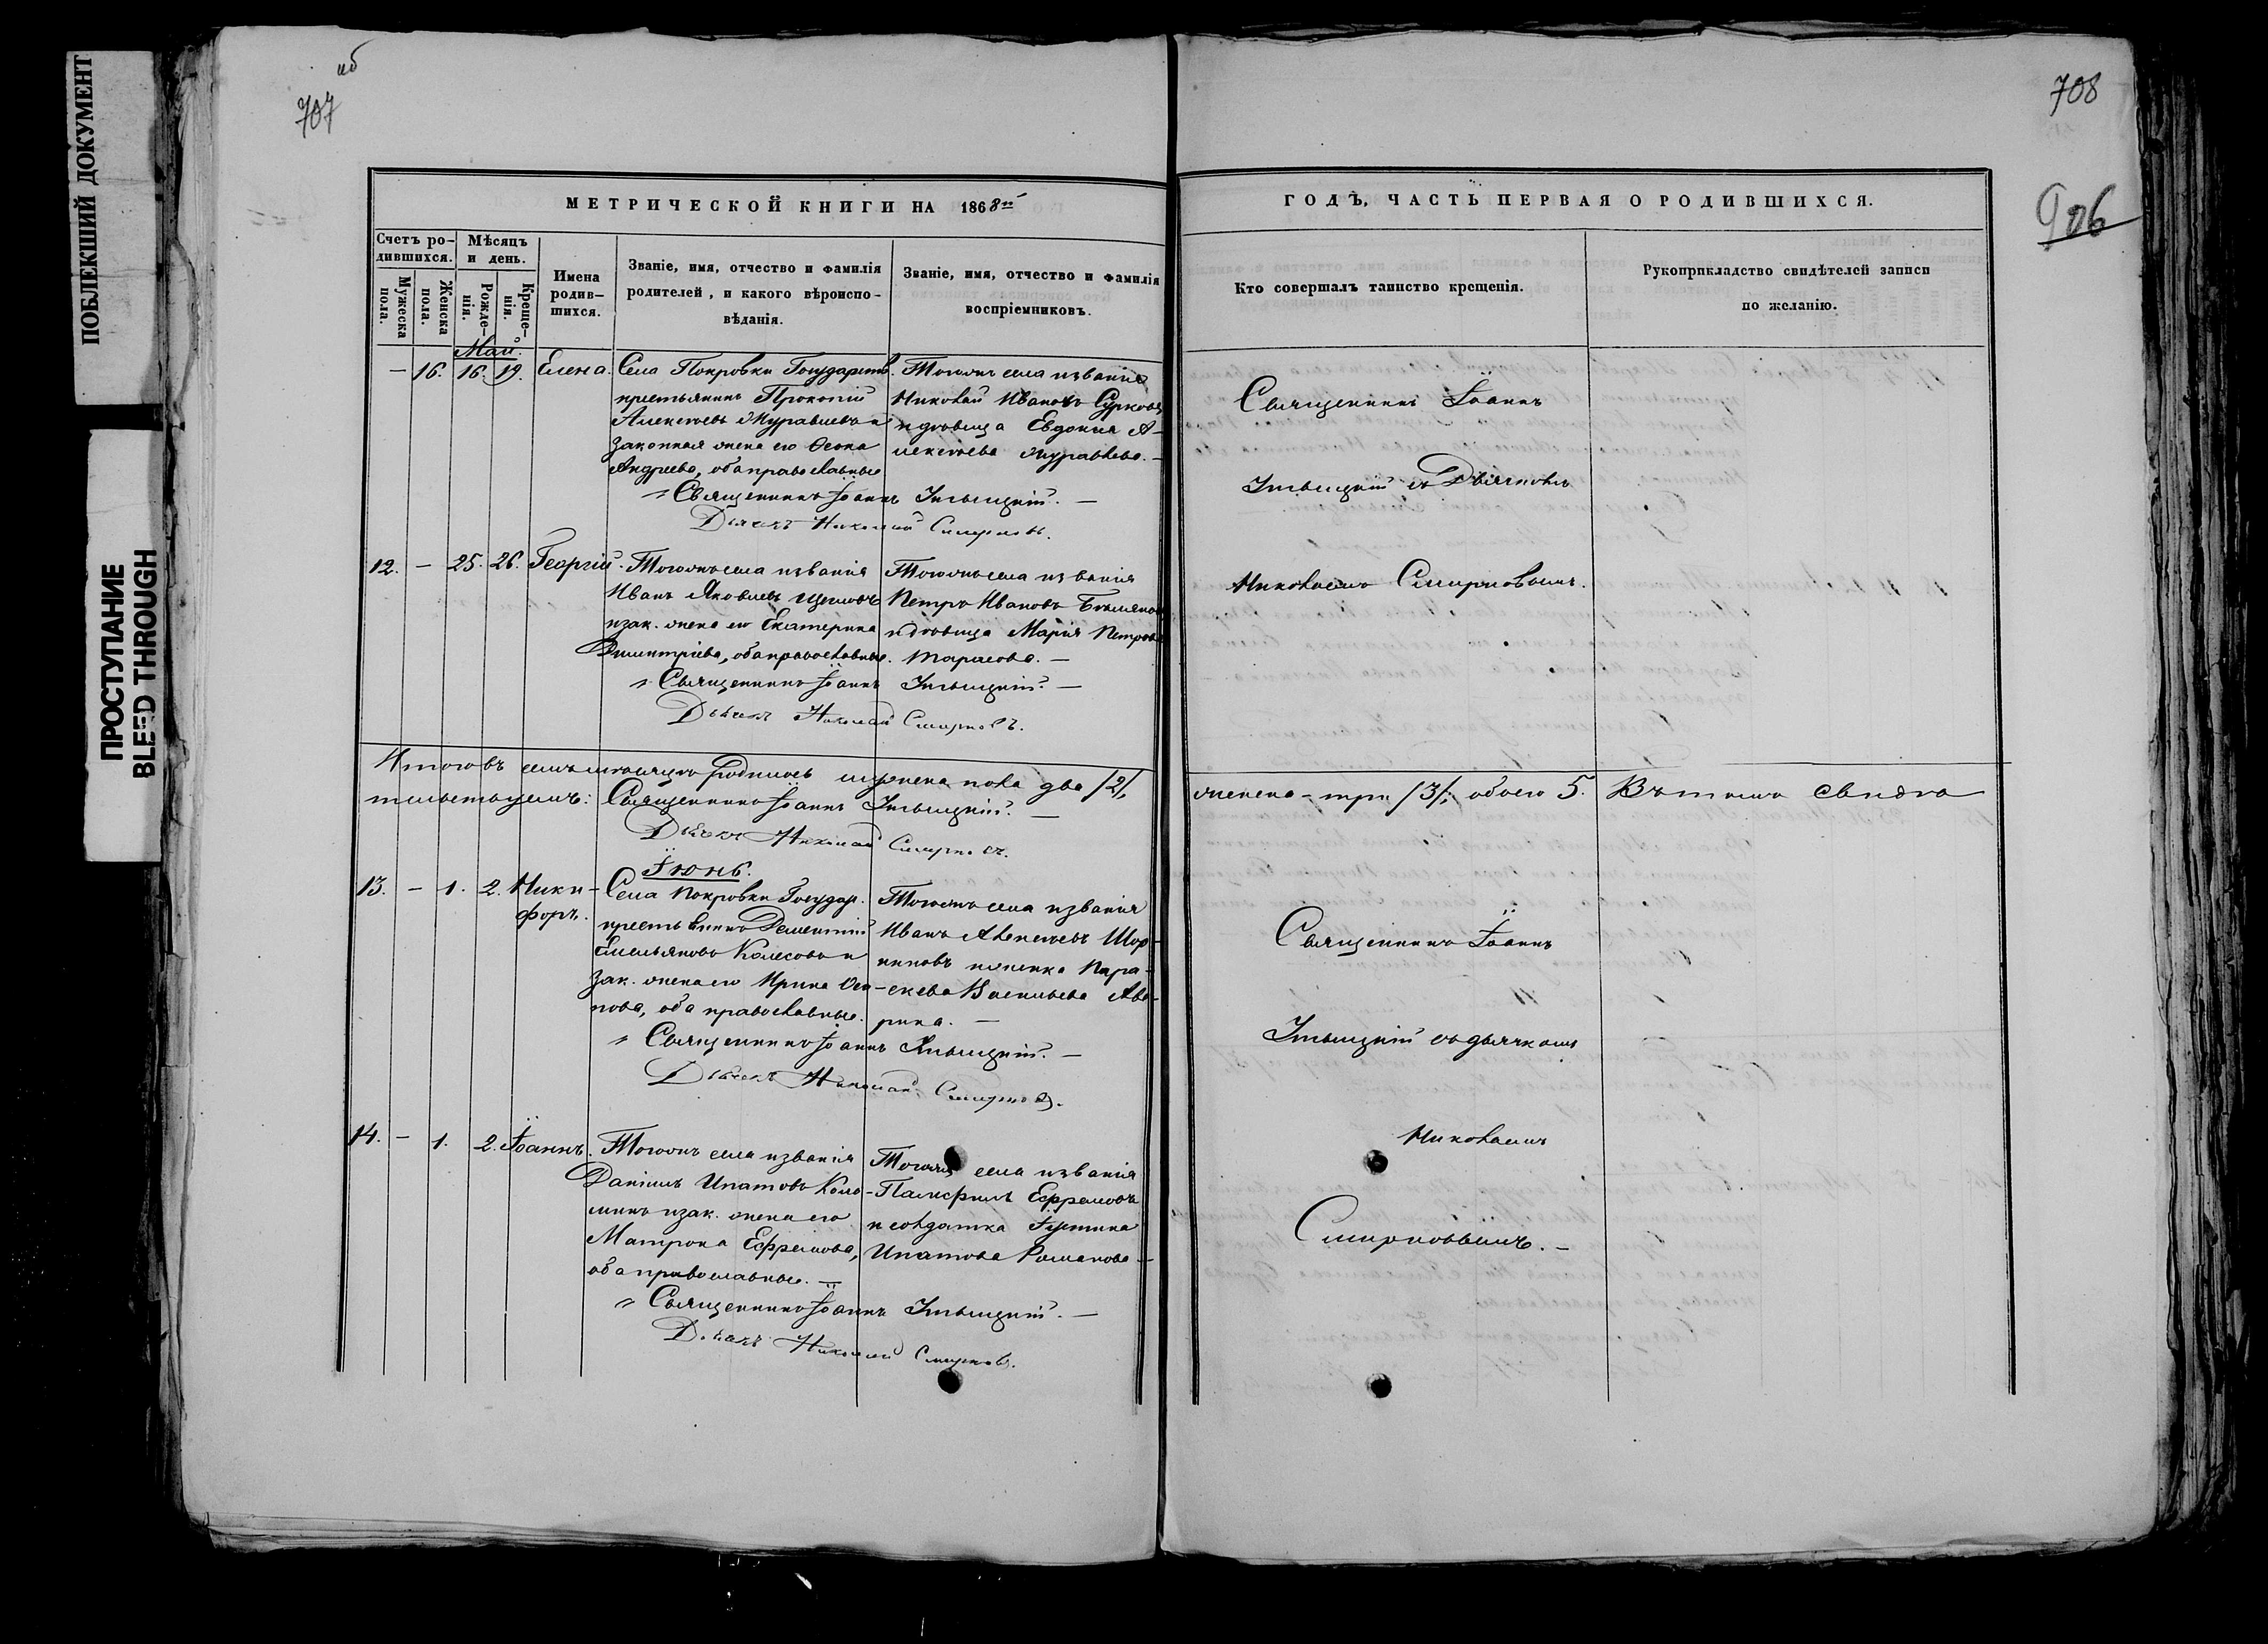 ПОБЛЕКШИЙ ДОКУМЕНТ
ПРОСТУПАНИЕ
BLEED THROUGH
об
707
МЕТРИЧЕСКОЙ КНИГИ НА 1868
Счетъ ро-
дившихся.
Мужеска
пола.
Женска
пола.
Мѣсяцъ
и день.
Рожде-
нія.
Креще-
нія.
Имена
родив-
шихся.
Званіе, имя, отчество и фамилія
родителей, и какого вѣроиспо-
вѣданія.
Званіе, имя, отчество и фамилія
воспріемниковъ.
Май.
— 16. 16. 19. Елена.
Села Покровки Государств.
крестьянинъ Прокопій
Алексѣевъ Журавлевъ и
законная жена его Ѳекла
Андреева, оба православные
Тогожъ села и званія
Николай Ивановъ Сурковъ
и дѣвица Евдокия А-
лексѣева Журавлева. —
Священникъ Іоаннъ —
Дьячекъ Николай Смирновъ.
12. — 25. 26. Георгій.
Тогожъ села и званія
Иванъ Яковлевъ
и зак. жена его Екатерина
Димитріева, оба православные.
Тогожъ села и званія
Петръ Ивановъ
и дѣвица Марія Петрова
Тарасова. —
Священникъ Іоаннъ —
Дьячекъ Николай Смирновъ.
Итого въ семъ мѣсяцѣ родилось мужеска пола два /2/,
тельствуемъ: Священникъ Іоаннъ —
Дьячекъ Николай Смирновъ.
Іюнь.
13. — 1. 2. Ники-
форъ.
Села Покровки Государ.
крестьянинъ Дементій
Емельяновъ Колесовъ и
зак. жена его Ирина Оси-
пова, оба православные.
Тогожъ села и званія
Иванъ Алексѣевъ
и женка Пара-
скева Васильева Аве-
рина. —
Священникъ Іоаннъ —
Дьячекъ Николай Смирновъ.
14. — 1. 2. Іоаннъ.
Тогожъ села и званія
Даніилъ Ипатовъ
и зак. жена его
Матрона Ефремова,
оба православные. —
Тогожъ села и званія
Памфилъ Ефремовъ
и солдатка Іустина
Ипатова Романова —
Священникъ Іоаннъ —
Дьячекъ Николай Смирновъ.
708
906
ГОДЪ, ЧАСТЬ ПЕРВАЯ О РОДИВШИХСЯ.
Кто совершалъ таинство крещенія.
Рукоприкладство свидѣтелей записи
по желанію.
Священникъ Іоаннъ
съ Дьячкомъ
Николаемъ Смирновымъ.
женска — три /3/, обоего 5. Въ томъ свидѣ
Священникъ Іоаннъ
съ дьячкомъ
Николаемъ
Смирновымъ. —